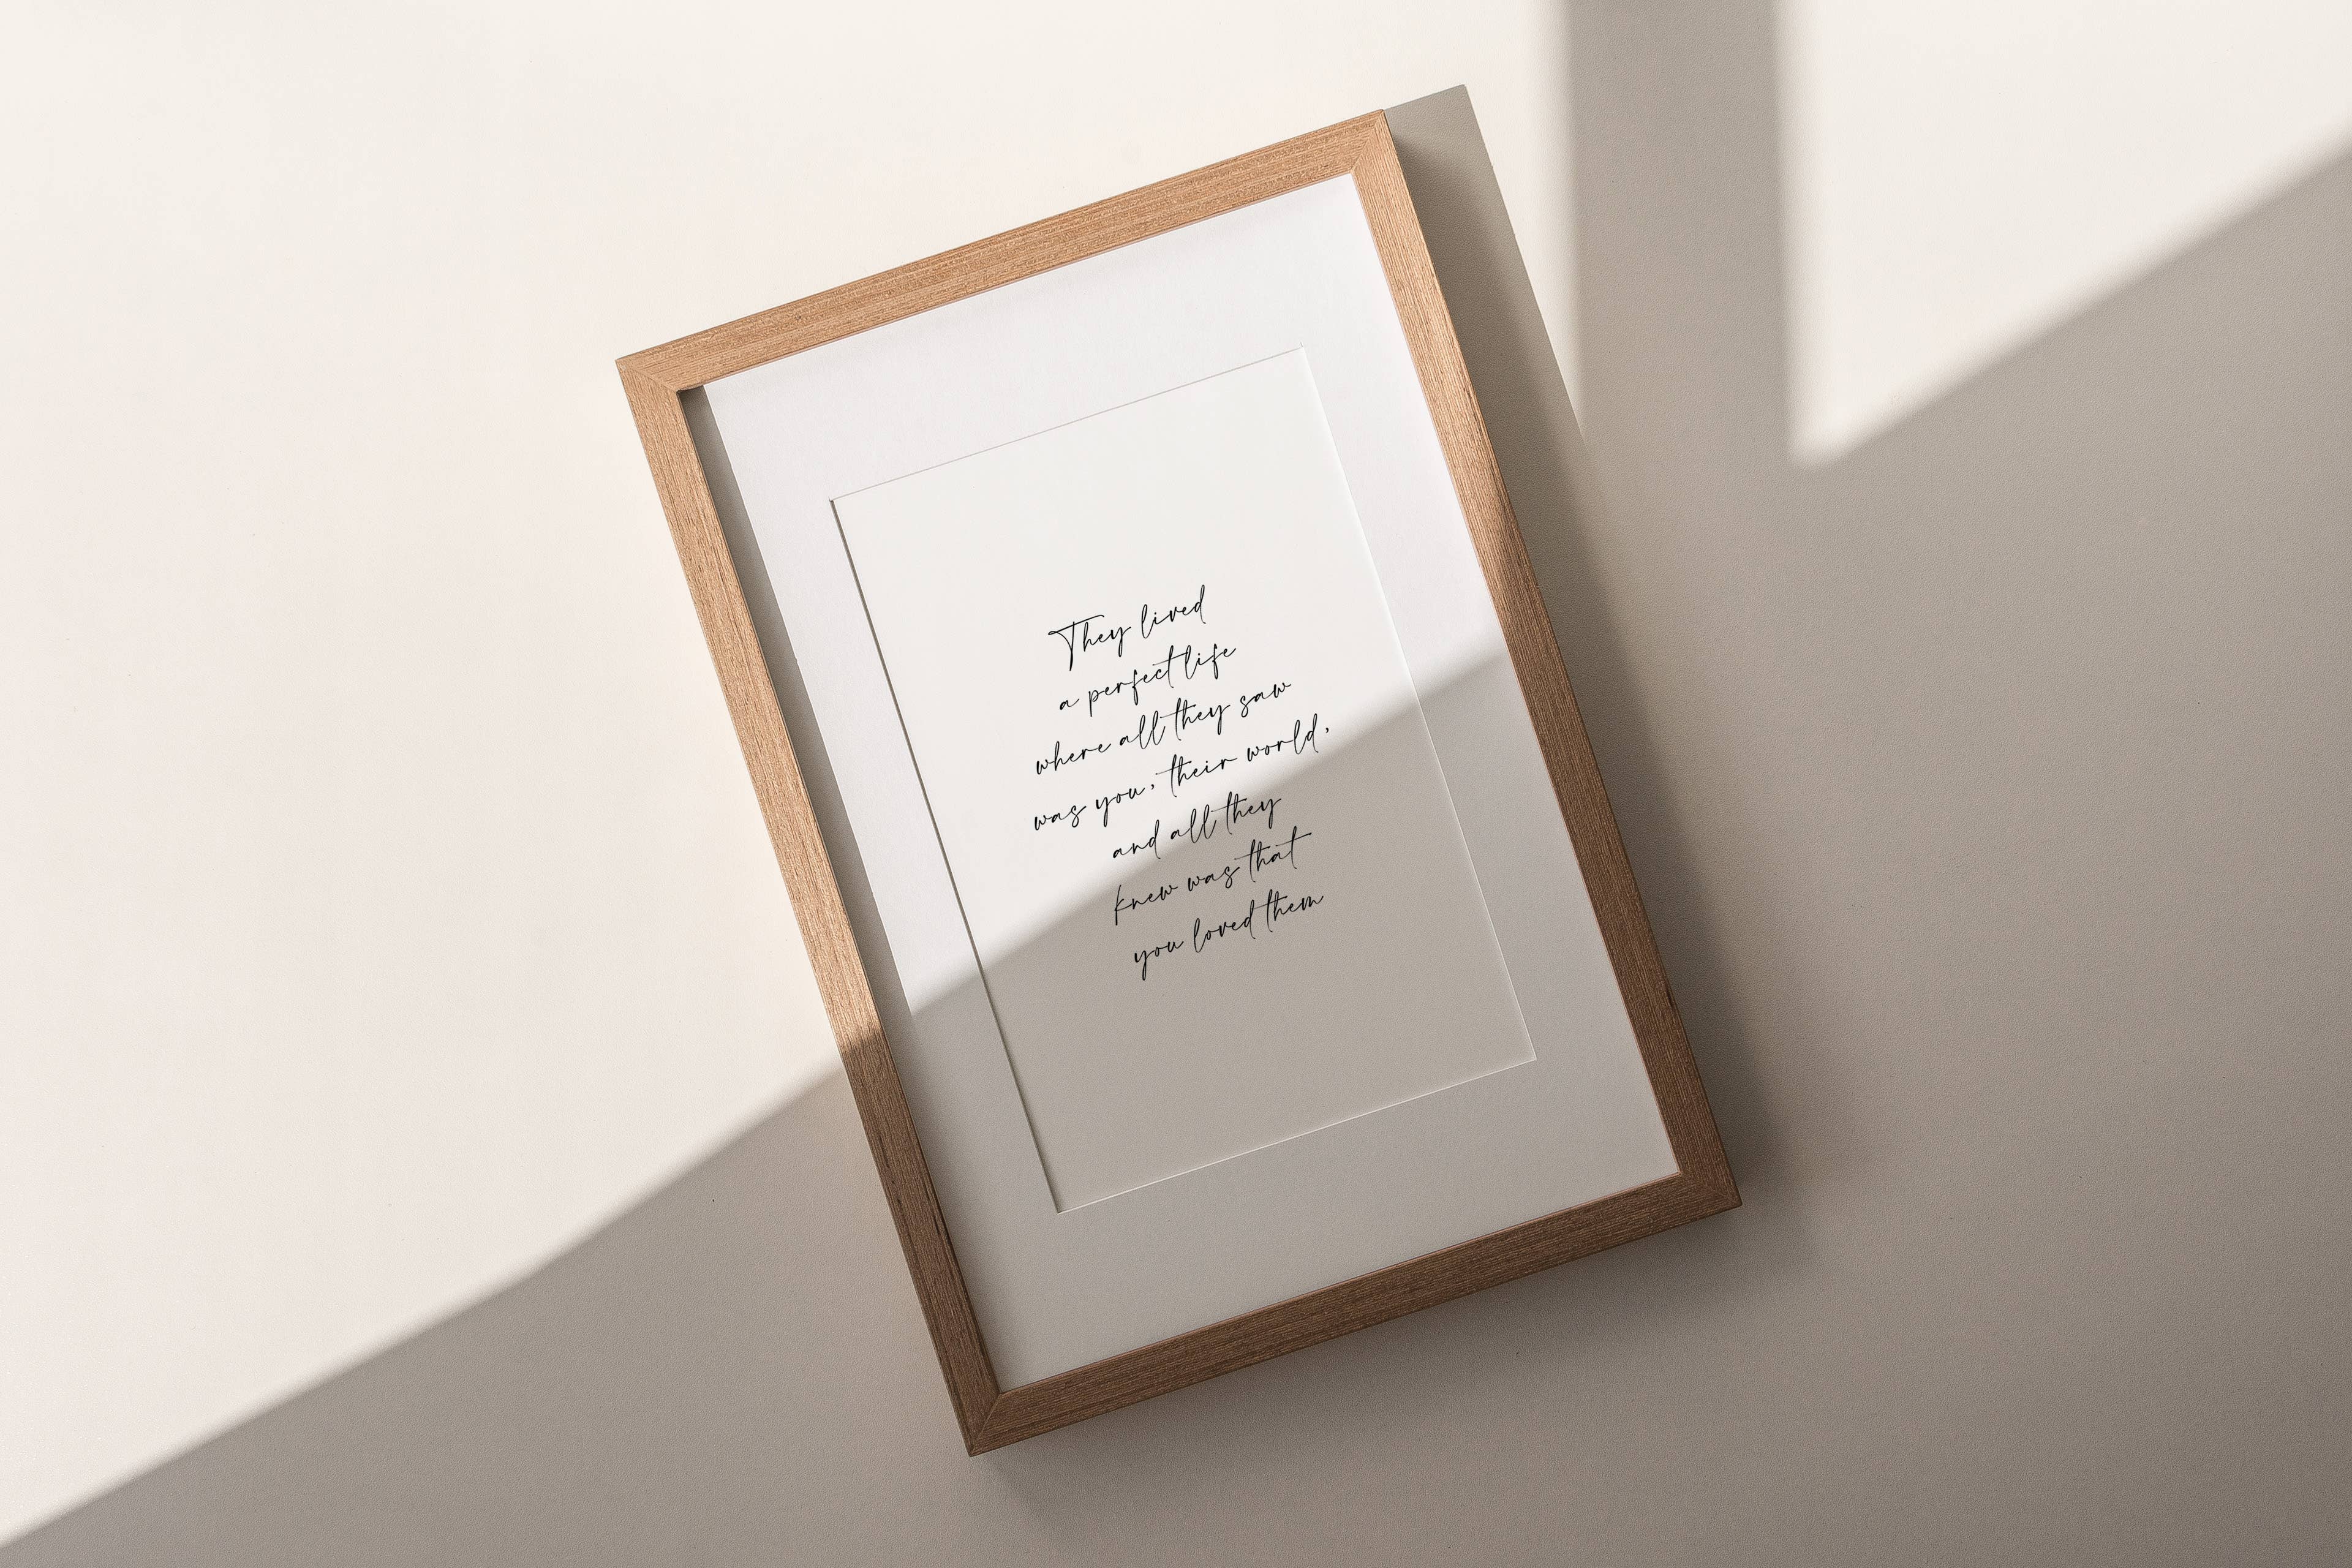 They lived
a perfect life
where all they saw
was you, their world,
and all they
knew was that
you loved them